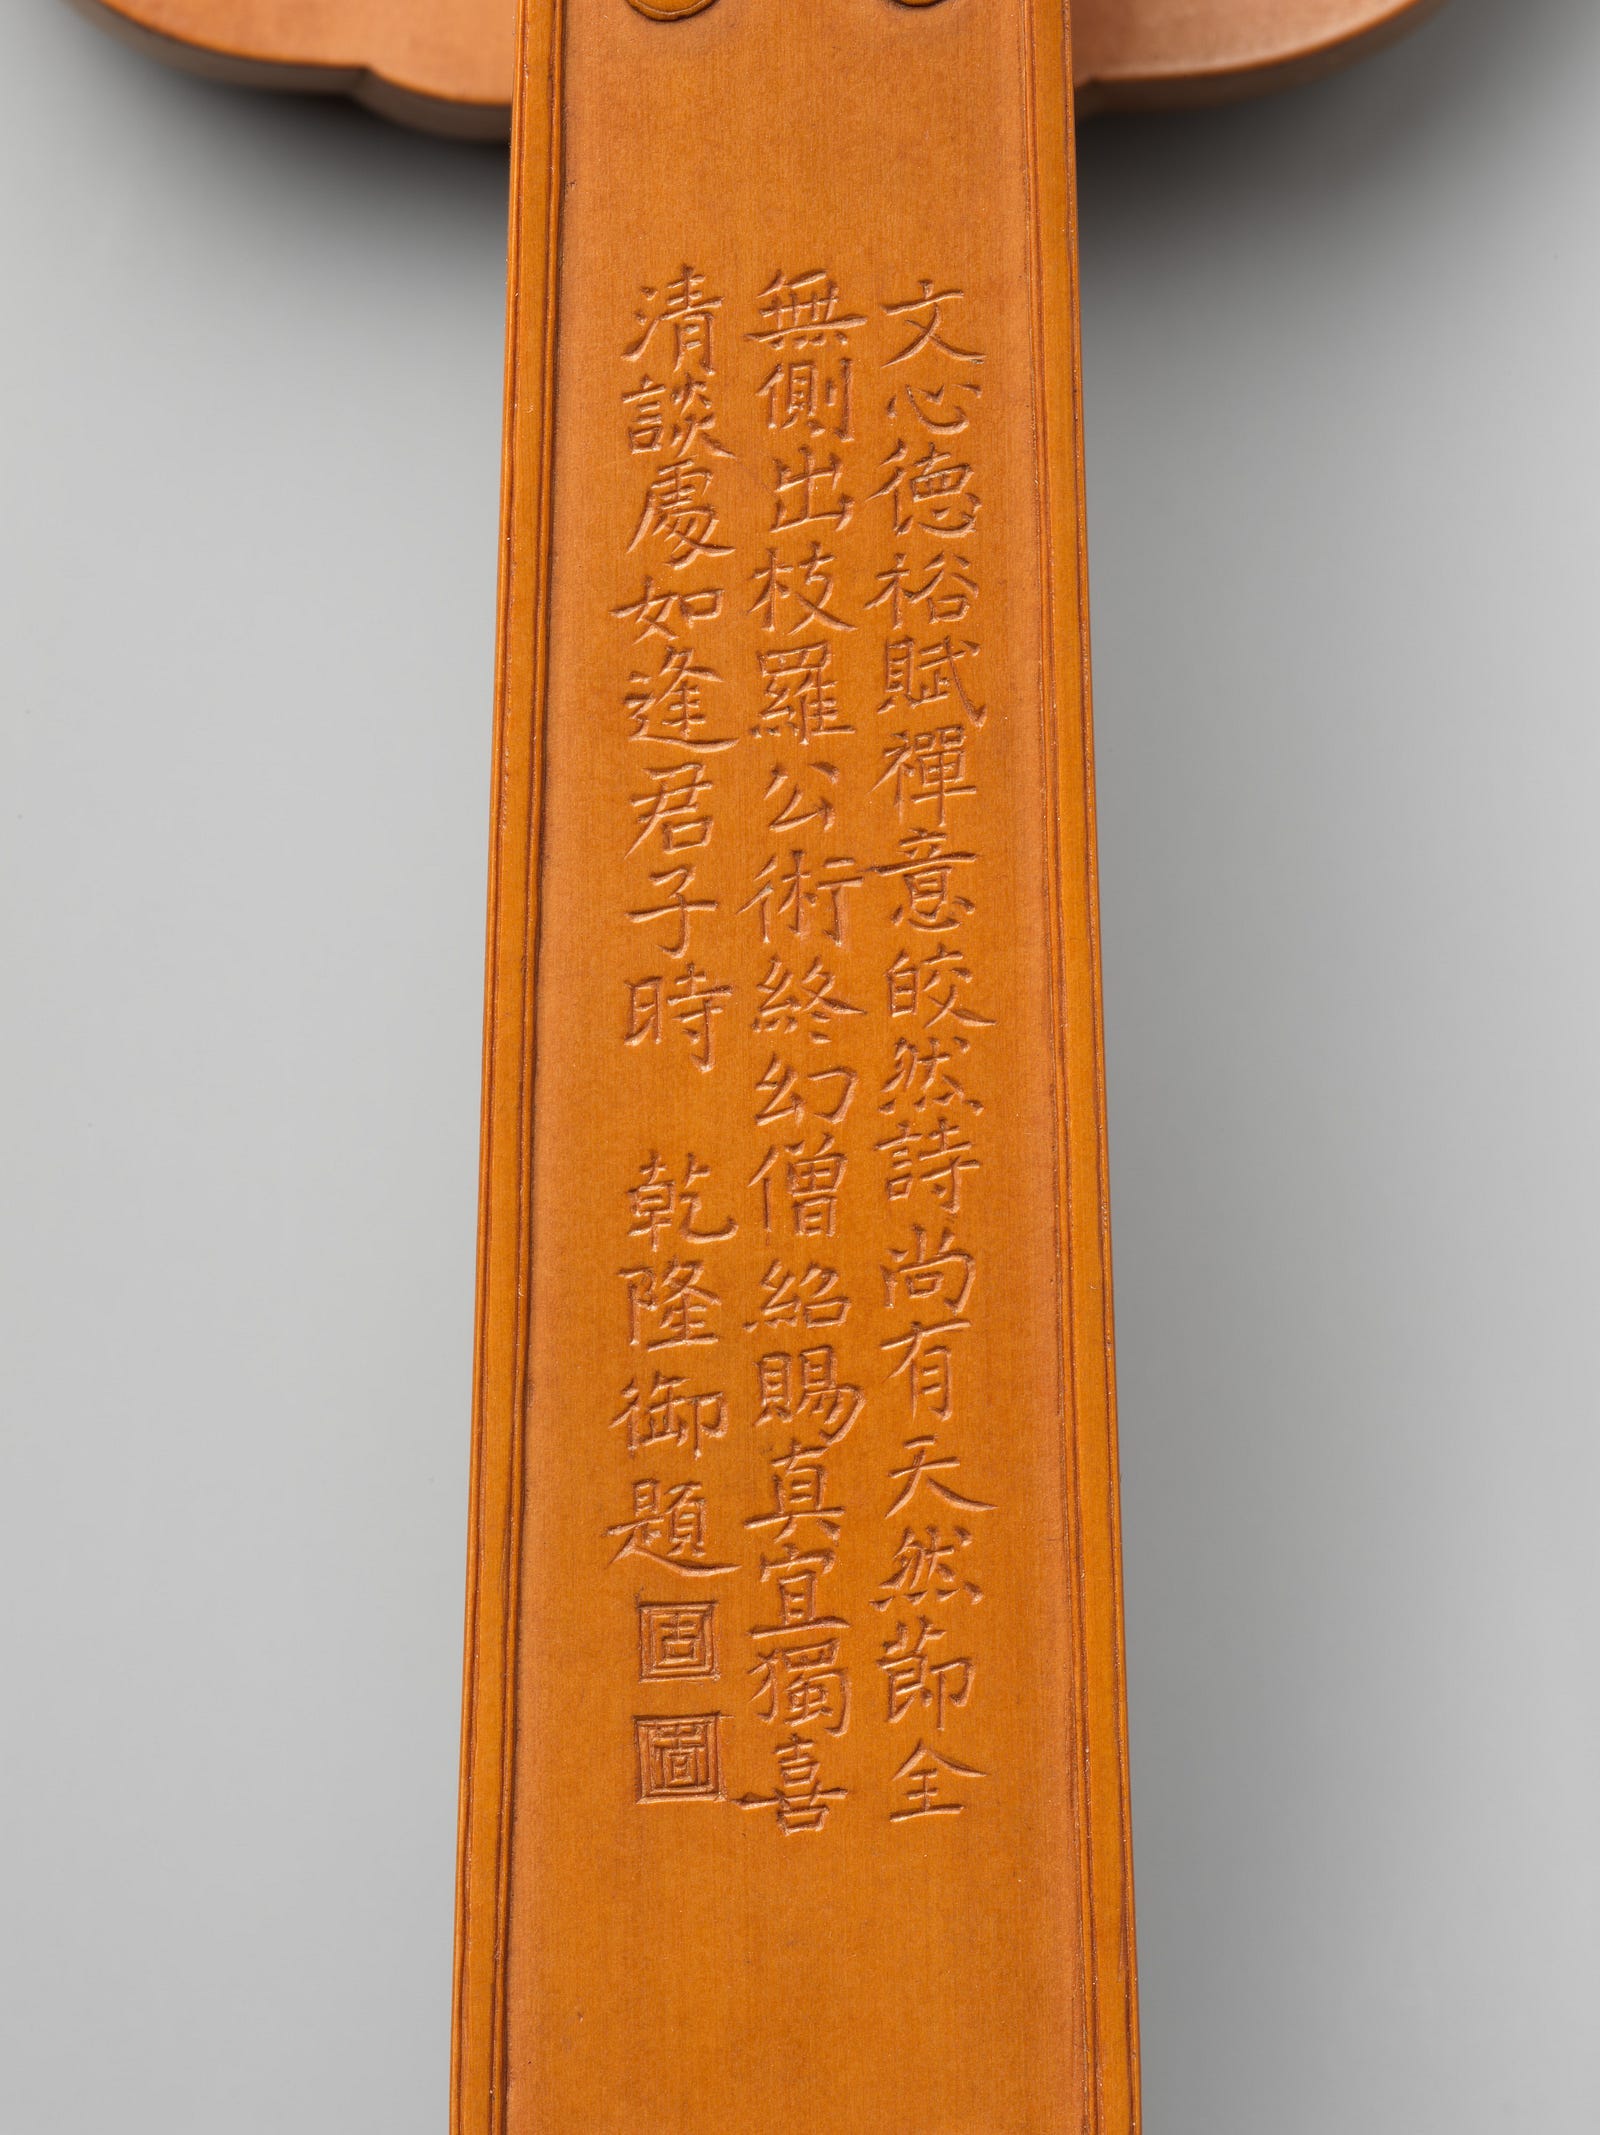 文心徳裕賦禪意皎然詩尚有天然節全
無側出枝羅公術終幻僧紹賜真宜獨喜
清談處如逢君子時 乾隆御題